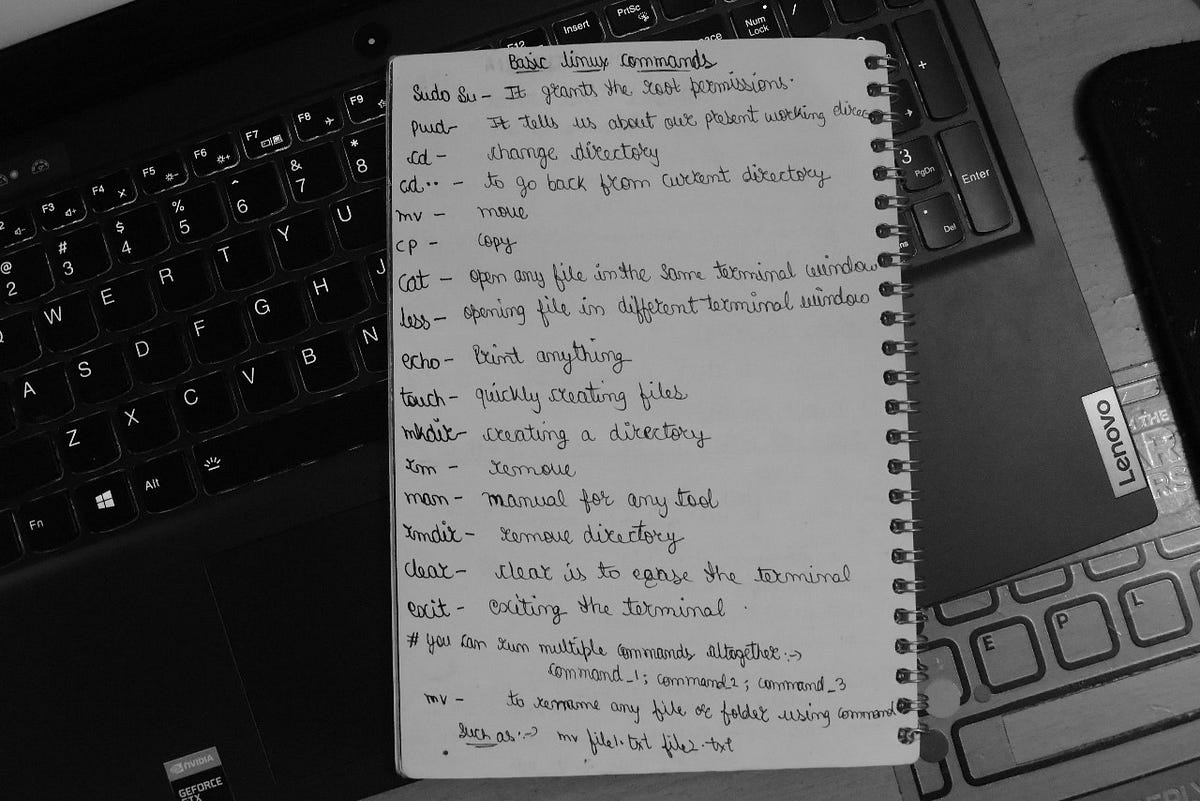 Basic linux commands
Sudo Su - It grants the root permissions.
pwd - It tells us about our present working direc
cd - change directory
cd.. - to go back from current directory
mv - move
cp - copy
cat - open any file in the same terminal window
less - opening file in different terminal window
echo - Print anything
touch - quickly creating files
mkdir - creating a directory
rm - remove
man - manual for any tool
rmdir - remove directory
clear - clear is to erase the terminal
exit - exiting the terminal.
# you can run multiple commands altogether :->
command_1; command_2; command_3
mv - to rename any file or folder using command
Such as :-> mv file1.txt file2.txt
Insert PrtSc Num Lock /
F3 F4 F5 F6 F7 F8 F9 F12
@ 2 # 3 $ 4 % 5 ^ 6 & 7 * 8
W E R T Y U
A S D F G H J
Z X C V B N
Fn Alt
+
3 PgDn Enter
. Del
Lenovo
NVIDIA
GEFORCE
E P L